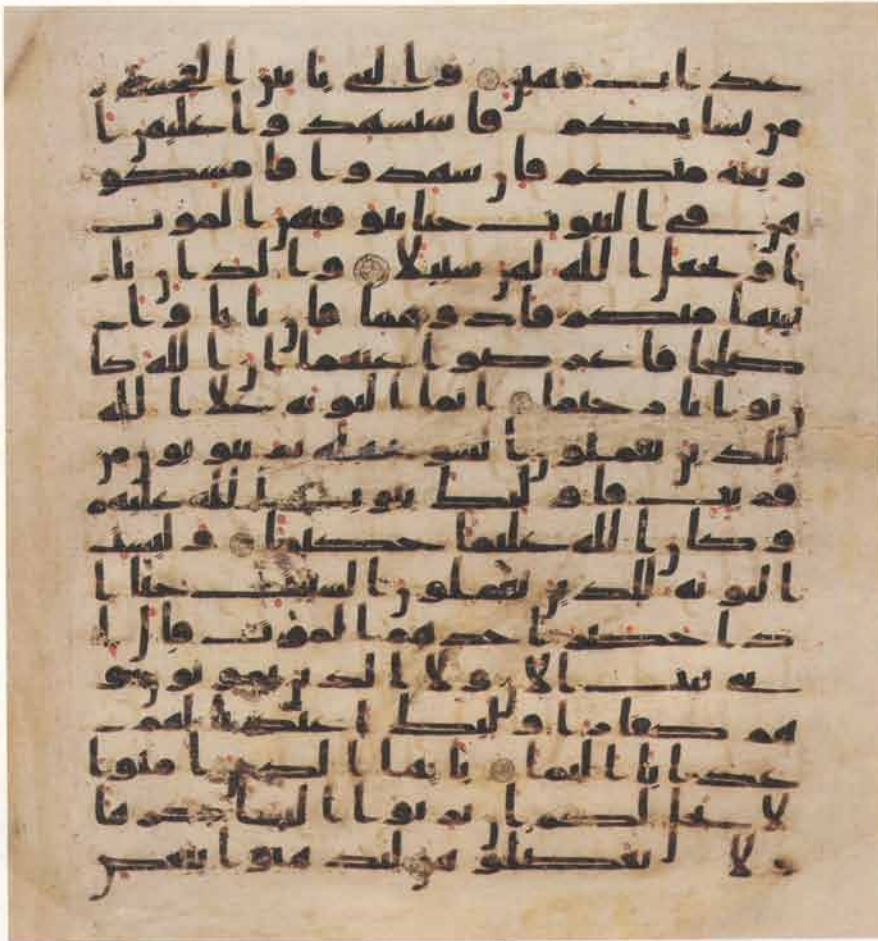 عذاب مهين والتي ياتين الفحشة
من نسايكم فاستشهدوا عليهن ا
ربعة منكم فان شهدوا فامسكو
هن في البيوت حتى يتوفيهن الموت
او يجعل الله لهن سبيلا والذان يا
تينها منكم فاذوهما فان تابا وا
صلحا فاعرضوا عنهما ان الله كا
ن توابا رحيما انما التوبة على الله
للذين يعملون السو بجهلة ثم يتوبون من
قريب فاوليك يتوب الله عليهم
وكان الله عليما حكيما وليست
التوبة للذين يعملون السيت حتى ا
ذا حضر احدهم الموت قال ا
ني تبت الان ولا الذين يموتون و
هم كفار اوليك اعتدنا لهم
عذابا اليما يايها الذين امنوا
لا يحل لكم ان ترثوا النسا كرها
ولا تعضلوهن لتذهبوا ببعض